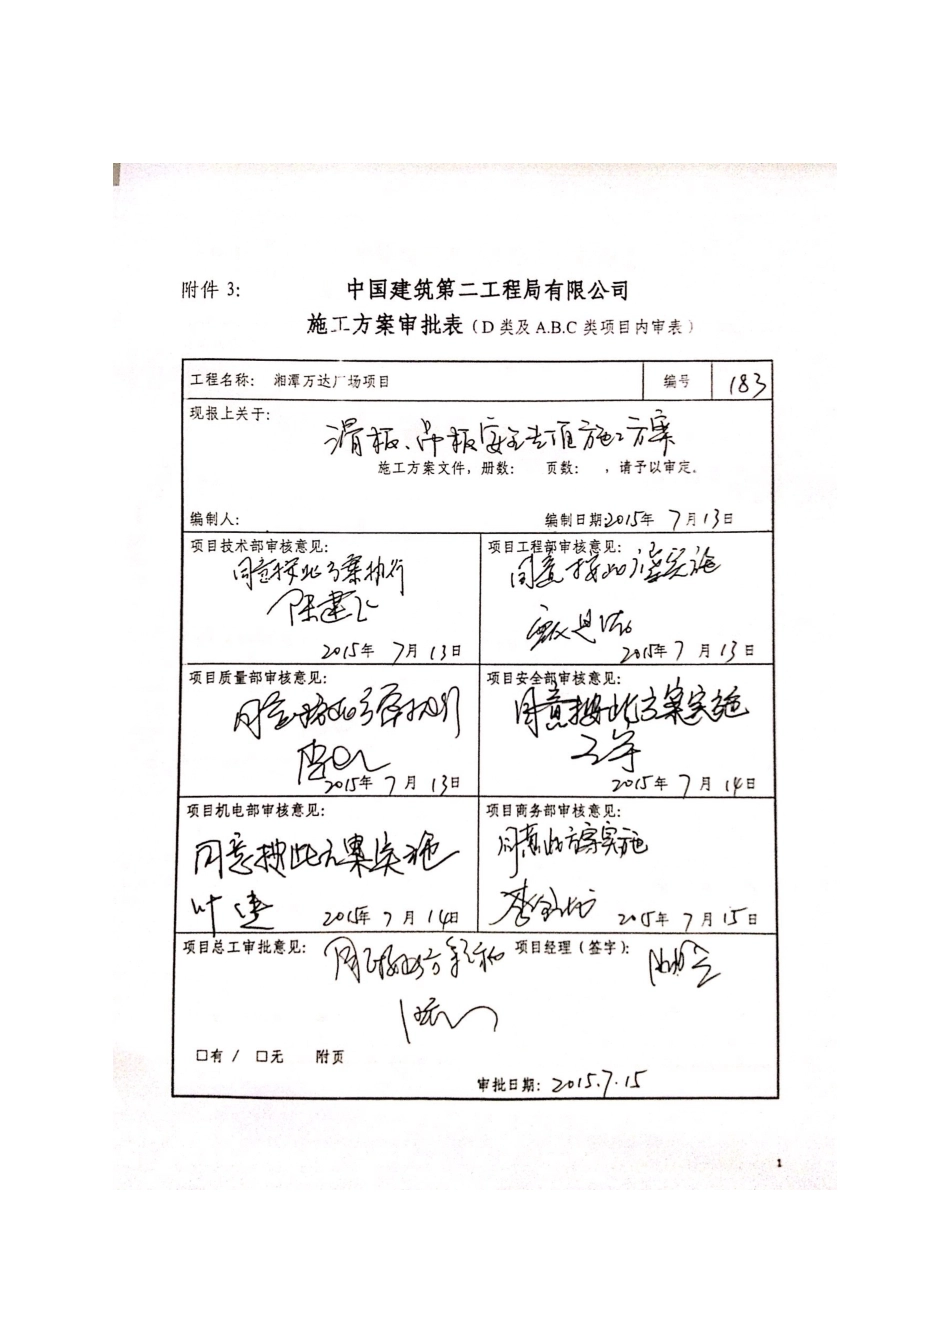 附件 3:
中国建筑第二工程局有限公司
施工方案审批表（D 类及 A.B.C 类项目内审表）
工程名称： 湘潭万达广场项目 编号 183
现报上关于：
滑板、吊板安全专项施工方案
施工方案文件，册数： 页数： ，请予以审定。
编制人： 编制日期:2015年 7月13日
项目技术部审核意见：
同意按此方案执行
陈建飞
2015年 7月13日
项目工程部审核意见：
同意按此方案实施
2015年 7月13日
项目质量部审核意见：
同意按此方案执行
2015年 7月13日
项目安全部审核意见：
同意按此方案实施
王宇
2015年 7月14日
项目机电部审核意见：
同意按此方案实施
叶建 2015年 7月14日
项目商务部审核意见：
同意此方案实施
2015年 7月15日
项目总工审批意见： 项目经理（签字）：
□有 / □无 附页
审批日期：2015.7.15
1